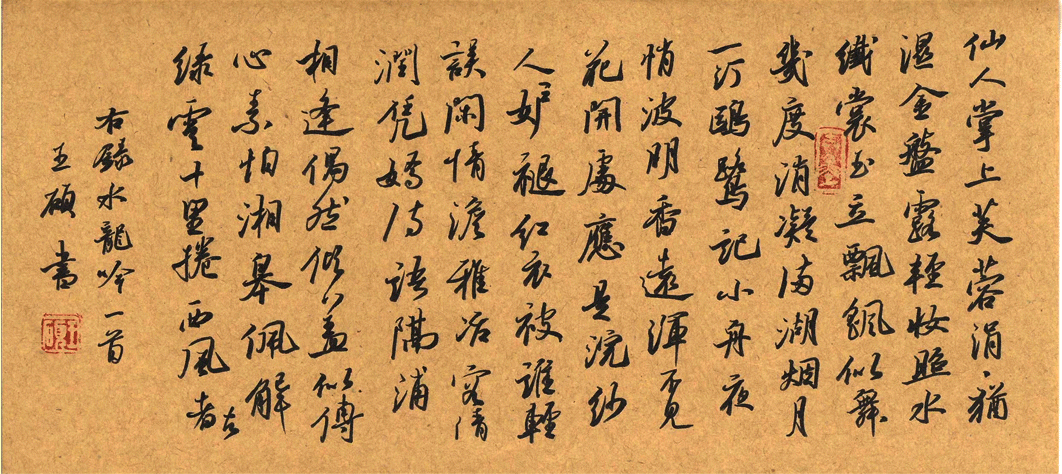 仙人掌上芙蓉涓涓猶
濕金盤露輕妝照水
纖裳玉立飄飖似舞
幾度消凝滿湖烟月
一汀鷗鷺記小舟夜
悄波明香遠渾不見
花開處應是浣紗
人妒褪紅衣被誰輕
誤閑情澹雅冶容清
潤凭嬌待語隔浦
相逢偶然傾蓋似傳
心素怕湘皋佩解
綠雲十里捲西風去
右錄水龍吟一首
王碩書
王碩